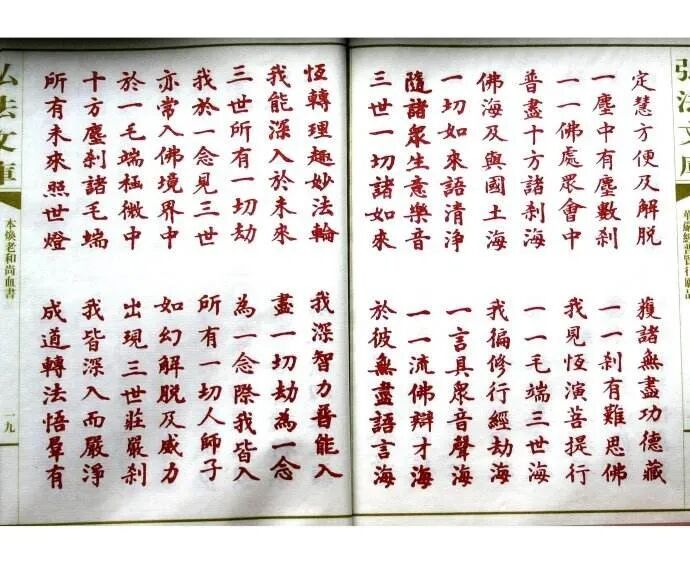 定慧方便及解脫 獲諸無盡功德藏
一塵中有塵數剎 一一剎有難思佛
一一佛處眾會中 我見恆演菩提行
普盡十方諸剎海 一一毛端三世海
佛海及與國土海 我徧修行經劫海
一切如來語清淨 一言具眾音聲海
隨諸眾生意樂音 一一流佛辯才海
三世一切諸如來 於彼無盡語言海
恆轉理趣妙法輪 我深智力普能入
我能深入於未來 盡一切劫為一念
三世所有一切劫 為一念際我皆入
我於一念見三世 所有一切人師子
亦常入佛境界中 如幻解脫及威力
於一毛端極微中 出現三世莊嚴剎
十方塵剎諸毛端 我皆深入而嚴淨
所有未來照世燈 成道轉法悟羣有
弘法文庫
本煥老和尚血書
一九